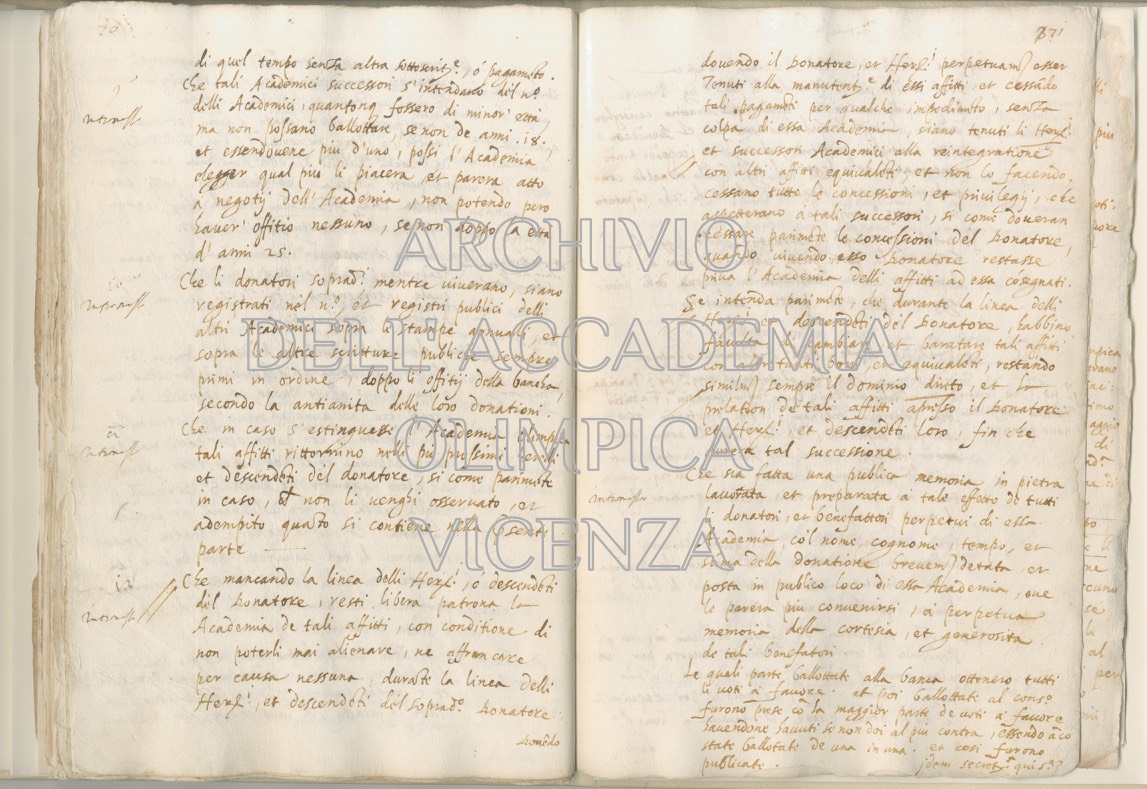 di quel tempo senza altra sottoscritt.e, ó pagamẽto.
Che tali Academici successori s'intendano del nº.
delli Academici, quantonq fossero di minor' età,
ma non possano ballottare, se non de anni .18.
et essendovene piu d'uno, possi l'Academia
elegger qual più li piacera, et parera atto
a negotij dell'Academia, non potendo pero
haver' offitio nessuno, se non doppo la età
d'anni 25.
Che li donatori soprad.i mentre viverano, siano
registrati nel nº. et registri publici delli
altri Academici sopra le stampe annuali, et
sopra le altre scritture publiche sempre
primi in ordine, doppo li offitij della bancha,
secondo la antianita delle loro donationi.
Che in caso s'estinguesse l'Academia Olimpica
tali affitti rittornino nelli più prossimi heredi
et descendẽti del donatore, si come parimẽte
in caso, non li venghi osservato, et
adempito quãto si contiene nella pñte
parte
Che mancando la linea delli Hered.i, o descendẽti
del Donatore, resti libera patrona la
Academia de tali affitti, con conditione di
non poterli mai alienare, ne affrancare
per causa nessuna, durãte la linea delli
Hered.i, et descendẽti del soprad.o Donatore.
dovendo il Donatore, et Hered.i perpetuam. esser
Tenuti alla manutent.e di essi affitti, et cessãdo
tali pagamẽti per qualche impedimẽto, senza
colpa di essa Academia, siano tenuti li Hered.i
et successori Academici alla reintegratione
con altri affitti equivalẽti et non lo facendo,
cessano tutte le concessioni, et privilegij, che
aspetterano a tali successori, si come doveran
cessare parimẽte le concessioni del Donatore,
quando vivendo esso Donatore restasse
priva l'Academia delli affitti ad essa cõsegnati.
Se intenda parimẽte, che durante la linea delli
Heredi et descendẽti del Donatore, habbino
facultà di cambiare et barattare tali affitti
con altri buoni, et equivalẽti, restando
similm. sempre il dominio diretto, et la
prelation de tali affitti apresso il Donatore
et Hered.i, et descendẽti loro, fin che
durera tal successione.
Che sia fatta una publica memoria in pietra
lavorata, et preparata a tale effetto de tutti
li donatori, et benefattori perpetui di essa
Academia col nome, cognome, tempo, et
suma della donatione brevem. detata, et
posta in publico loco di essa Academia, ove
le parera piu convenirsi, a perpetua
memoria della cortesia, et generosita
de tali benefatori
Le quali parte ballottate alla banca ottenero tutti
li voti à favore. et poi ballottate al cons.o
furono prese cõ la maggior parte de voti à favore
havendone havuti se non doi al piu contra, essendo
state ballotate de una in una. et cosi furono
publicate.